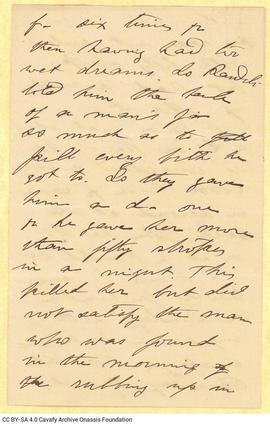 f– six times or
then having had two
wet dreams. So Randi-
told him the tale
of a man's f–
so much as to
kill every
got to. So they gave
him a d– one
or he gave her more
than fifty strokes
in a night. This
killed her but did
not satisfy the man
who was found
in the morning
rubbing up in
CC BY-SA 4.0 Cavafy Archive Onassis Foundation